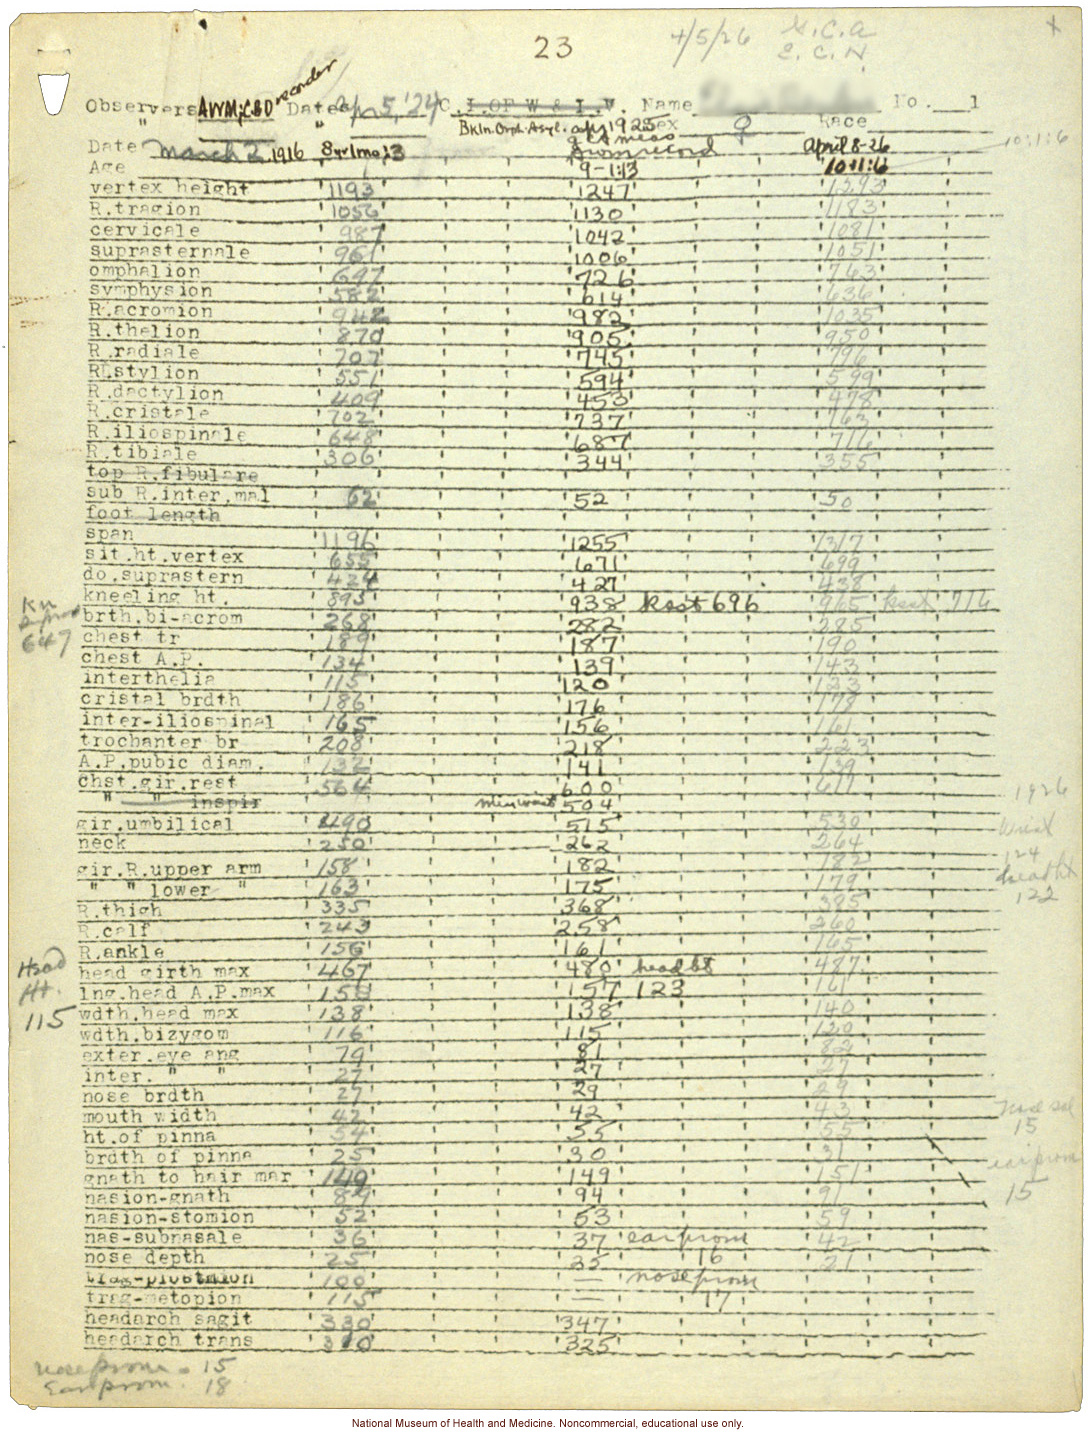 23 4/5/26 E.C.N.
Observers AWM; CBD recorder Date Apr 5, '24 C.I.OF W & I.W. Name No. 1
" " Bkln. Orph. Asyl. 1925 Sex ♀ Race
Date March 2 1916 8yr 1mo 3 own record April 8-26 10:1:6
Age 9-1:13 10:1:6
vertex height 1193 1247 1293
R.tragion 1056 1130 1183
cervicale 987 1042 1081
suprasternale 961 1006 1051
omphalion 697 726 763
symphysion 582 614 636
R.acromion 942 982 1035
R.thelion 870 905 950
R.radiale 707 745 796
R.stylion 551 594 599
R.dactylion 409 453 478
R.cristale 702 737 763
R.iliospinale 648 687 716
R.tibiale 306 344 355
top R.fibulare
sub R.inter,mal 62 52 50
foot length
span 1196 1255 1317
sit.ht.vertex 655 671 699
do.suprastern 424 427 438
kneeling ht. 895 938 ksst 696 965 ksst 716
647
brth.bi-acrom 268 282 285
chest tr 189 187 190
chest A.P. 134 139 143
interthelia 115 120 123
cristal brdth 186 176 178
inter-iliospinal 165 156 161
trochanter br 208 218 223
A.P.pubic diam. 132 141 139
chst.gir.rest 564 600 611
" " inspir min waist 504 1926
gir.umbilical 490 515 530 wrist
neck 250 262 264 124
gir.R.upper arm 158 182 182 head ht
" " lower " 163 175 179 122
R.thigh 335 368 385
R.calf 243 258 260
R.ankle 156 161 165
Head Ht. 115
head girth max 467 480 head ht 487
lng.head A.P.max 158 157 123 161
wdth.head max 138 138 140
wdth.bizygom 116 115 120
exter.eye ang 79 81 82
inter. " " 27 27 27
nose brdth 27 29 29
mouth width 42 42 43
ht.of pinna 54 55 55 15
brdth of pinna 25 30 31 earprom
gnath to hair mar 149 149 151 15
nasion-gnath 89 94 91
nasion-stomion 52 53 59
nas-subnasale 36 37 earprom 42
nose depth 25 25 16 21
trag-prostmion 100 — noseprom
trag-metopion 115 — 17
headarch sagit 330 347
headarch trans 310 325
Noseprom. 15
Earprom. 18
National Museum of Health and Medicine. Noncommercial, educational use only.